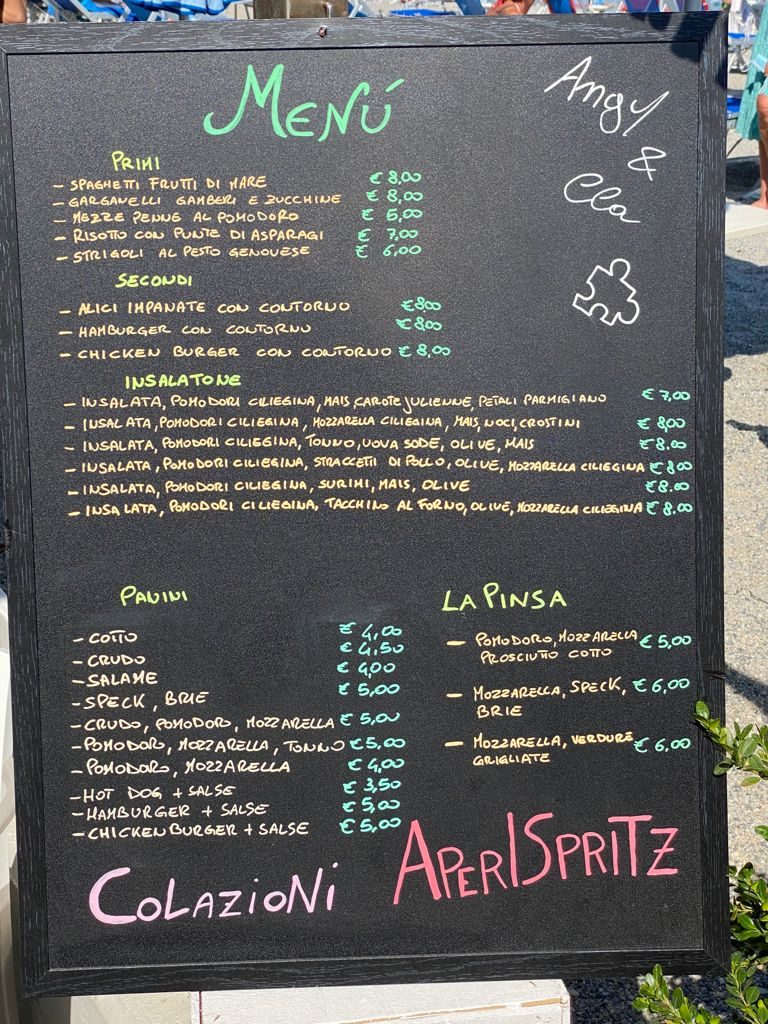 MENÚ
Angy
&
Cla
PRIMI
- SPAGHETTI FRUTTI DI MARE € 8,00
- GARGANELLI GAMBERI E ZUCCHINE € 8,00
- MEZZE PENNE AL POMODORO € 5,00
- RISOTTO CON PUNTE DI ASPARAGI € 7,00
- STRIGOLI AL PESTO GENOVESE € 6,00
SECONDI
- ALICI IMPANATE CON CONTORNO € 8,00
- HAMBURGER CON CONTORNO € 8,00
- CHICKEN BURGER CON CONTORNO € 8,00
INSALATONE
- INSALATA, POMODORI CILIEGINA, MAIS, CAROTE JULIENNE, PETALI PARMIGIANO € 7,00
- INSALATA, POMODORI CILIEGINA, MOZZARELLA CILIEGINA, MAIS, NOCI, CROSTINI € 8,00
- INSALATA, POMODORI CILIEGINA, TONNO, UOVA SODE, OLIVE, MAIS € 8.00
- INSALATA, POMODORI CILIEGINA, STRACCETTI DI POLLO, OLIVE, MOZZARELLA CILIEGINA € 8.00
- INSALATA, POMODORI CILIEGINA, SURIMI, MAIS, OLIVE € 8.00
- INSALATA, POMODORI CILIEGINA, TACCHINO AL FORNO, OLIVE, MOZZARELLA CILIEGINA € 8.00
PANINI
- COTTO € 4,00
- CRUDO € 4,50
- SALAME € 4,00
- SPECK, BRIE € 5,00
- CRUDO, POMODORO, MOZZARELLA € 5,00
- POMODORO, MOZZARELLA, TONNO € 5,00
- POMODORO, MOZZARELLA € 4,00
- HOT DOG + SALSE € 3,50
- HAMBURGER + SALSE € 5,00
- CHICKENBURGER + SALSE € 5,00
LA PINSA
- POMODORO, MOZZARELLA € 5,00
PROSCIUTTO COTTO
- MOZZARELLA, SPECK, € 6,00
BRIE
- MOZZARELLA, VERDURE € 6,00
GRIGLIATE
COLAZIONI
APERISPRITZ